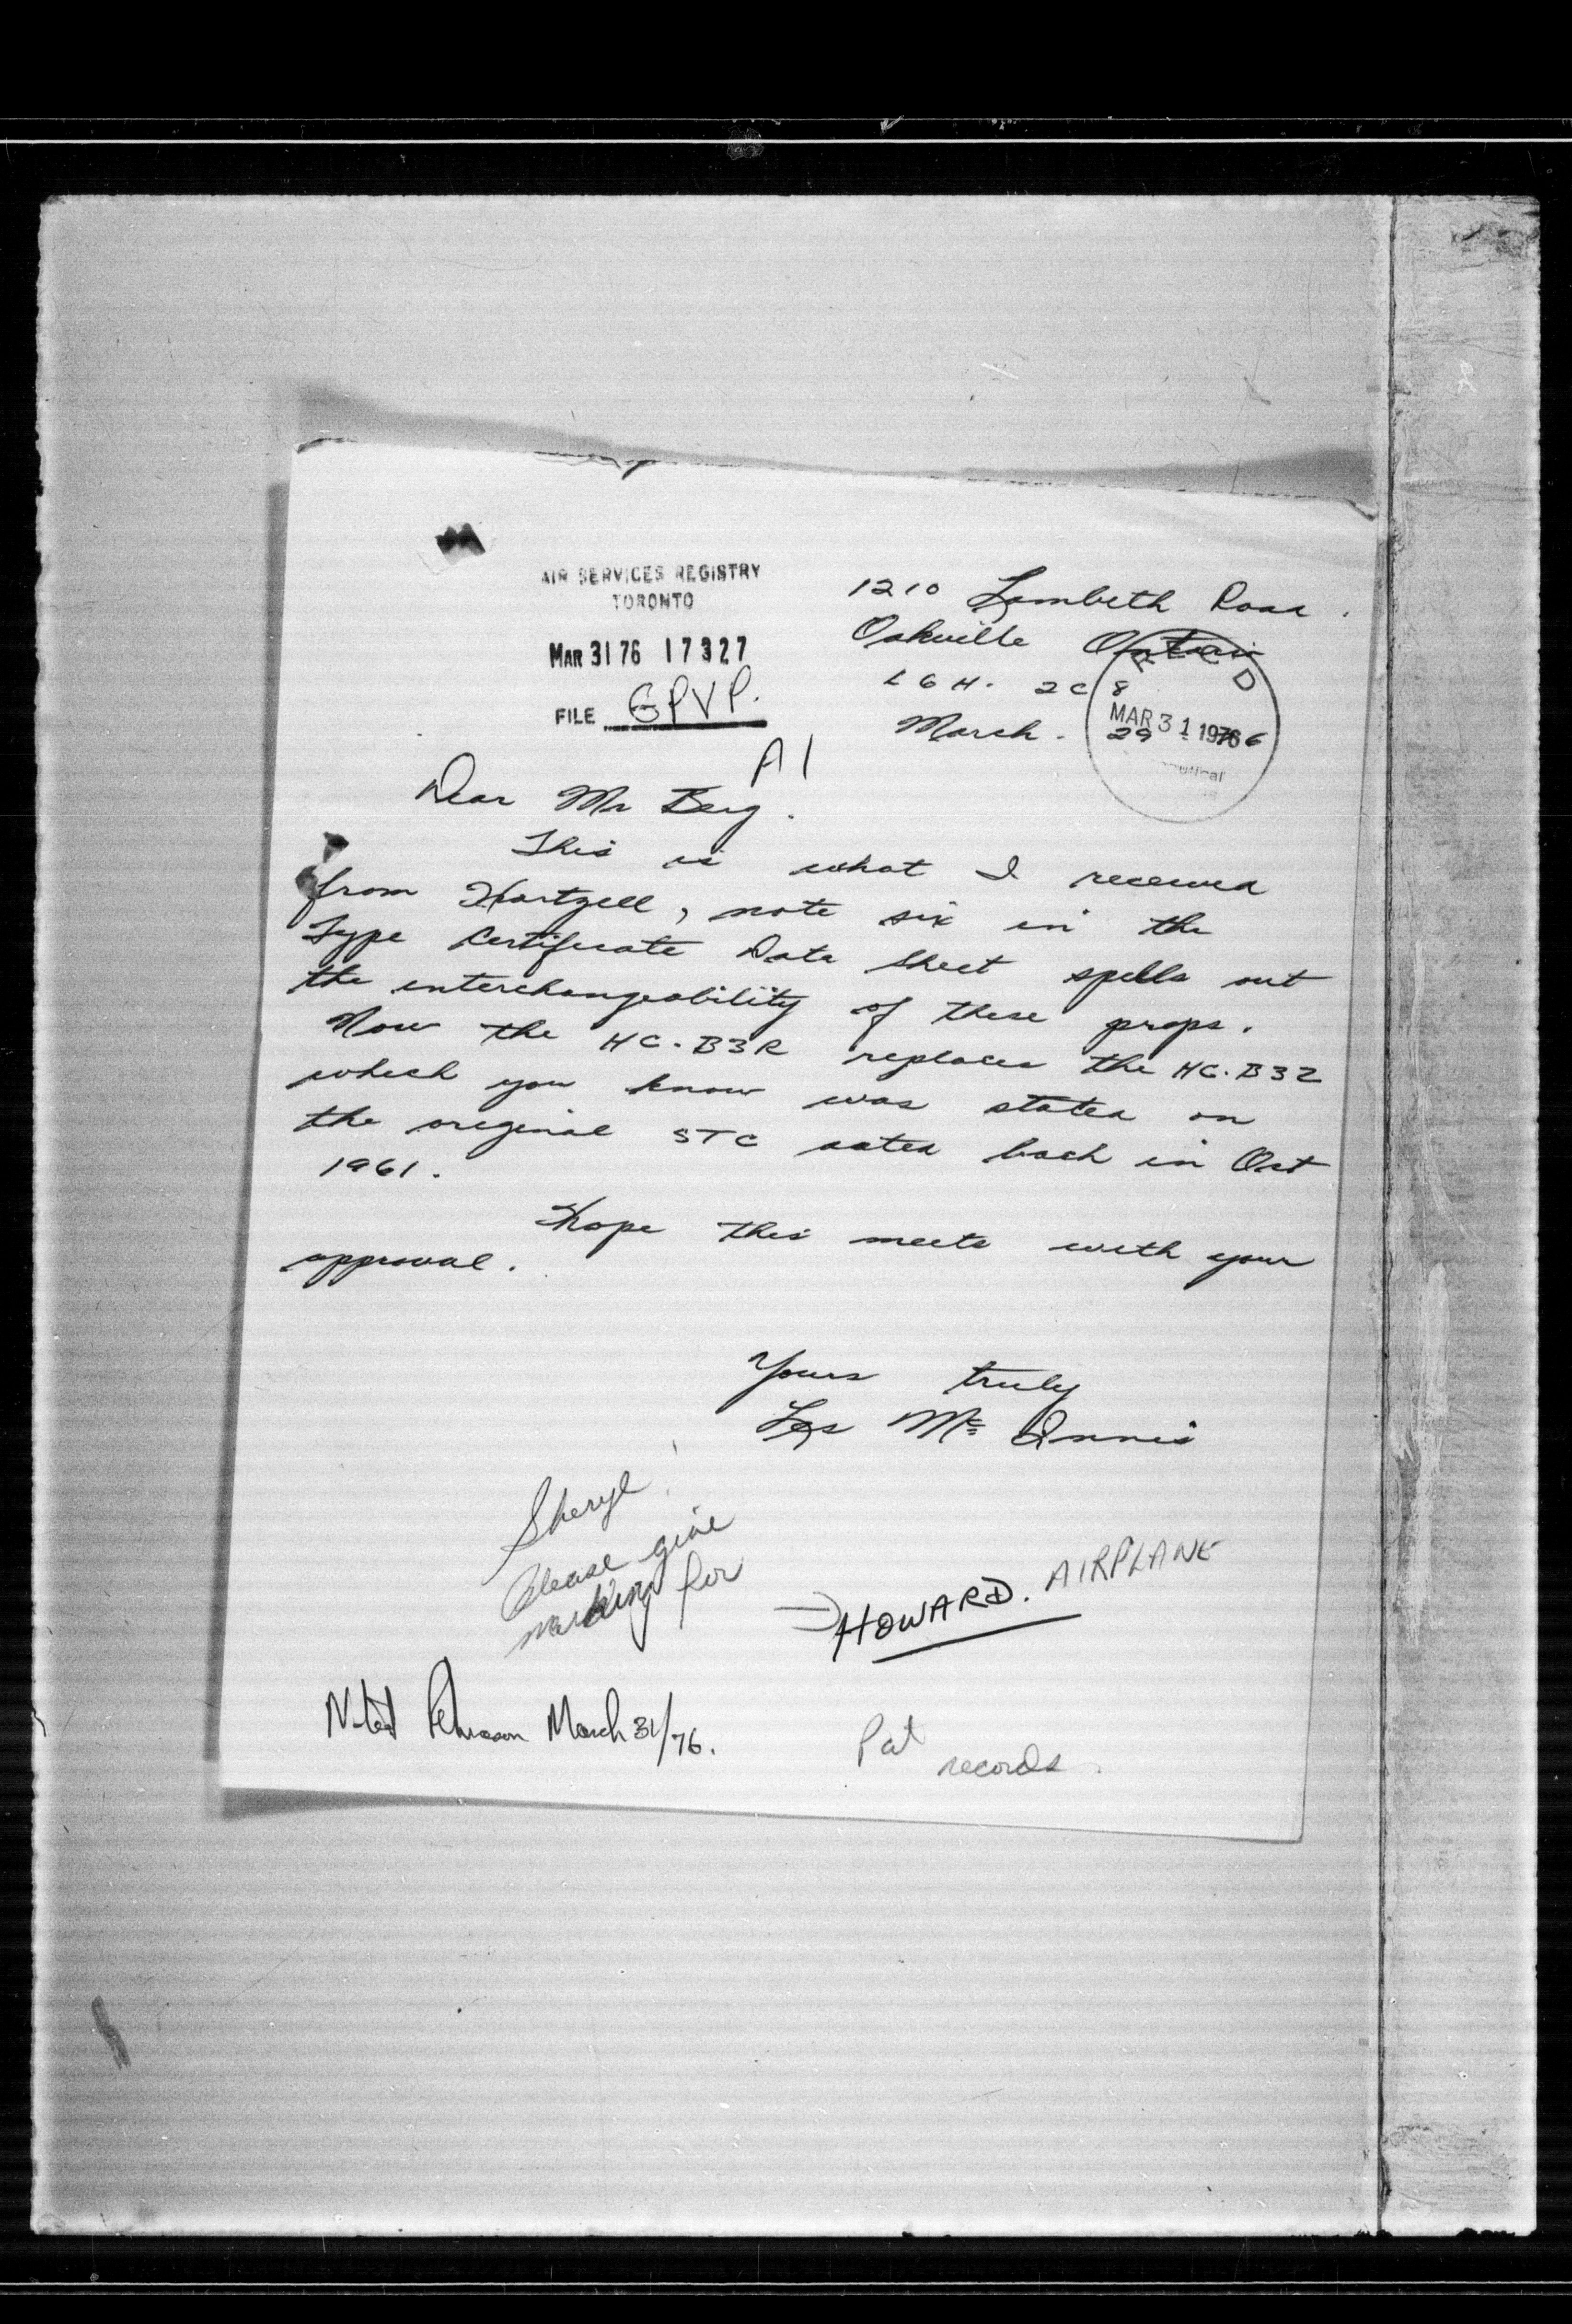 AIR SERVICES REGISTRY
TORONTO
MAR 31 76 17327
FILE GPVP.
A1
1210 Lambeth Road.
Oakville Ontario
L6H. 2C8
March. 29
REC'D
MAR 31 1976
Dear Mr Berg.
This is what I received
from Hartzell, note six in the
Type Certificate Data Sheet spells out
the interchangeability of these props.
Now the HC-B3R replaces the HC-B3Z
which you know was stated on
the original STC dated back in Oct
1961.
Hope this meets with your
approval.
Yours truly
Les Mc Innis
Sheryl
Please give
marking for
HOWARD. AIRPLANE
Noted March 31/76.
Pat
records